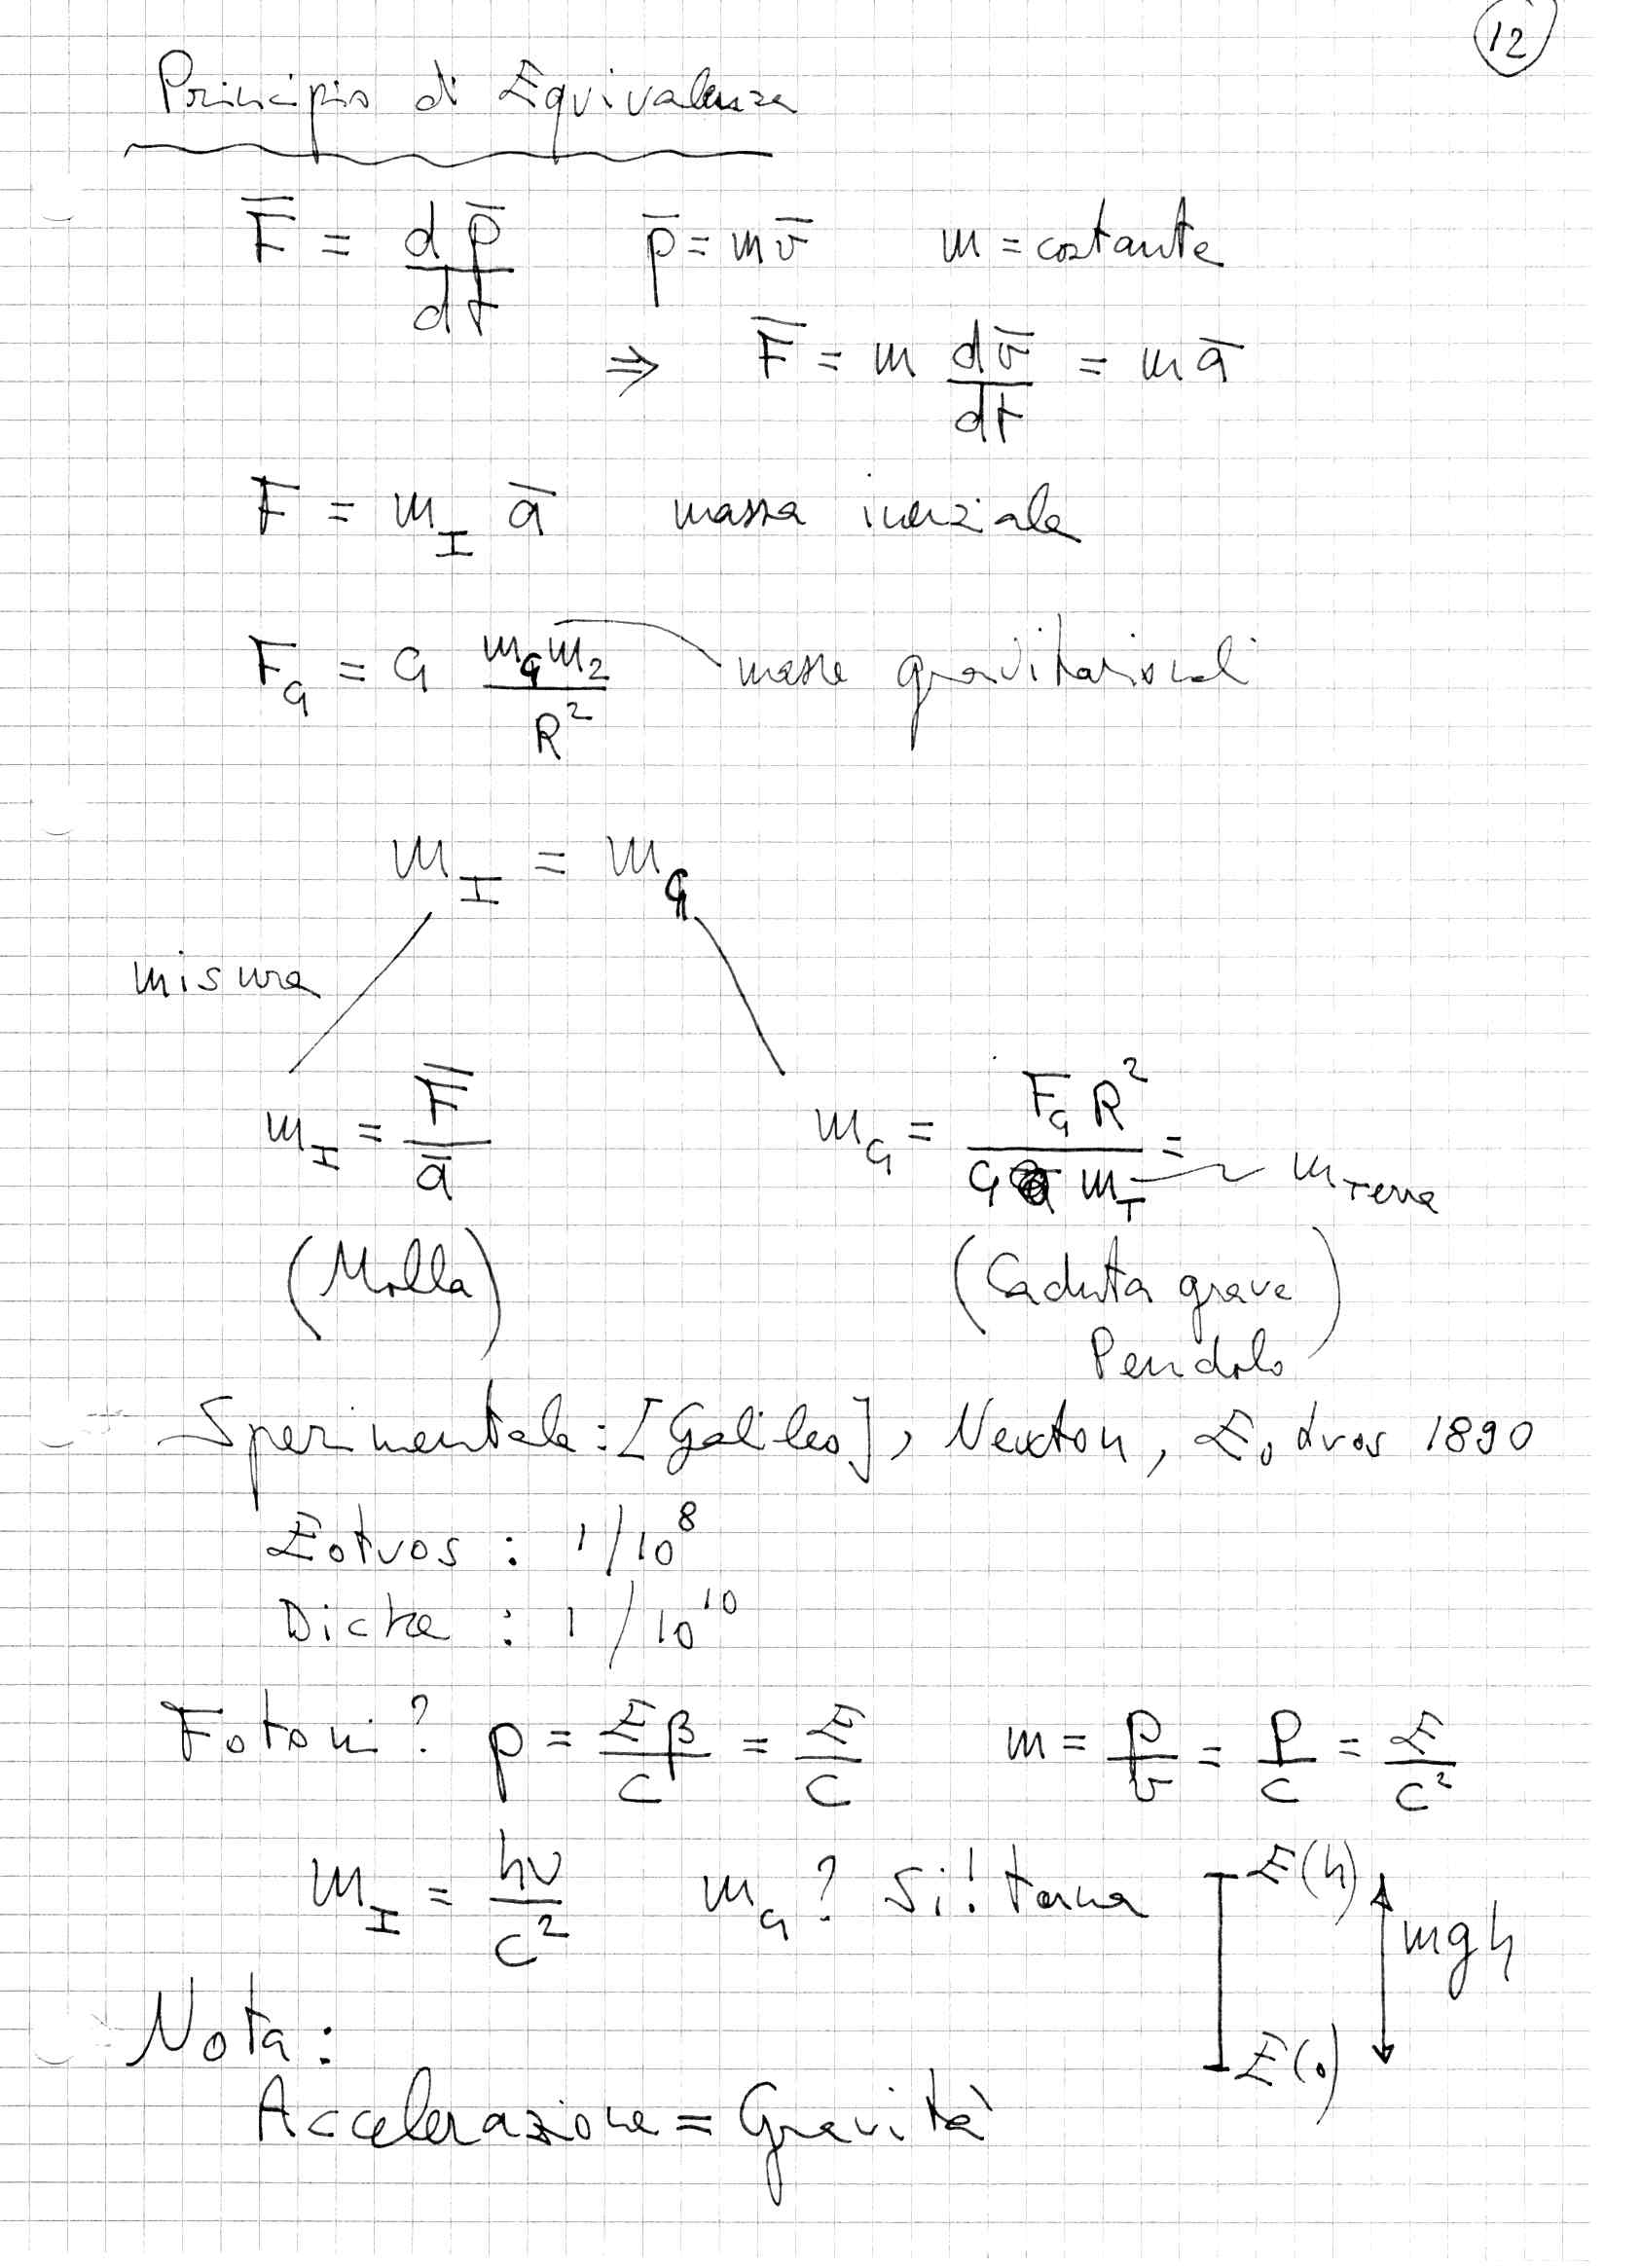 12
Principio di Equivalenza
F̄ = dp̄/dt   p̄ = mv̄   m = costante
⇒ F̄ = m dv̄/dt = mā
F = m_I ā   massa inerziale
F_G = G m_G m_2 / R²   masse gravitazionali
m_I = m_G
misura
m_I = F̄/ā   m_G = F_G R² / G m_T =   m_Terra
(Molla)   (Caduta grave
Pendolo)
Sperimentale: [Galileo], Newton, Eotvos 1890
Eotvos : 1/10⁸
Dicke : 1/10¹⁰
Fotoni? p = Eβ/c = E/c   m = p/v = p/c = E/c²
m_I = hν/c²   m_G? Si! torna   E(h)
mgh
E(0)
Nota:
Accelerazione = Gravità